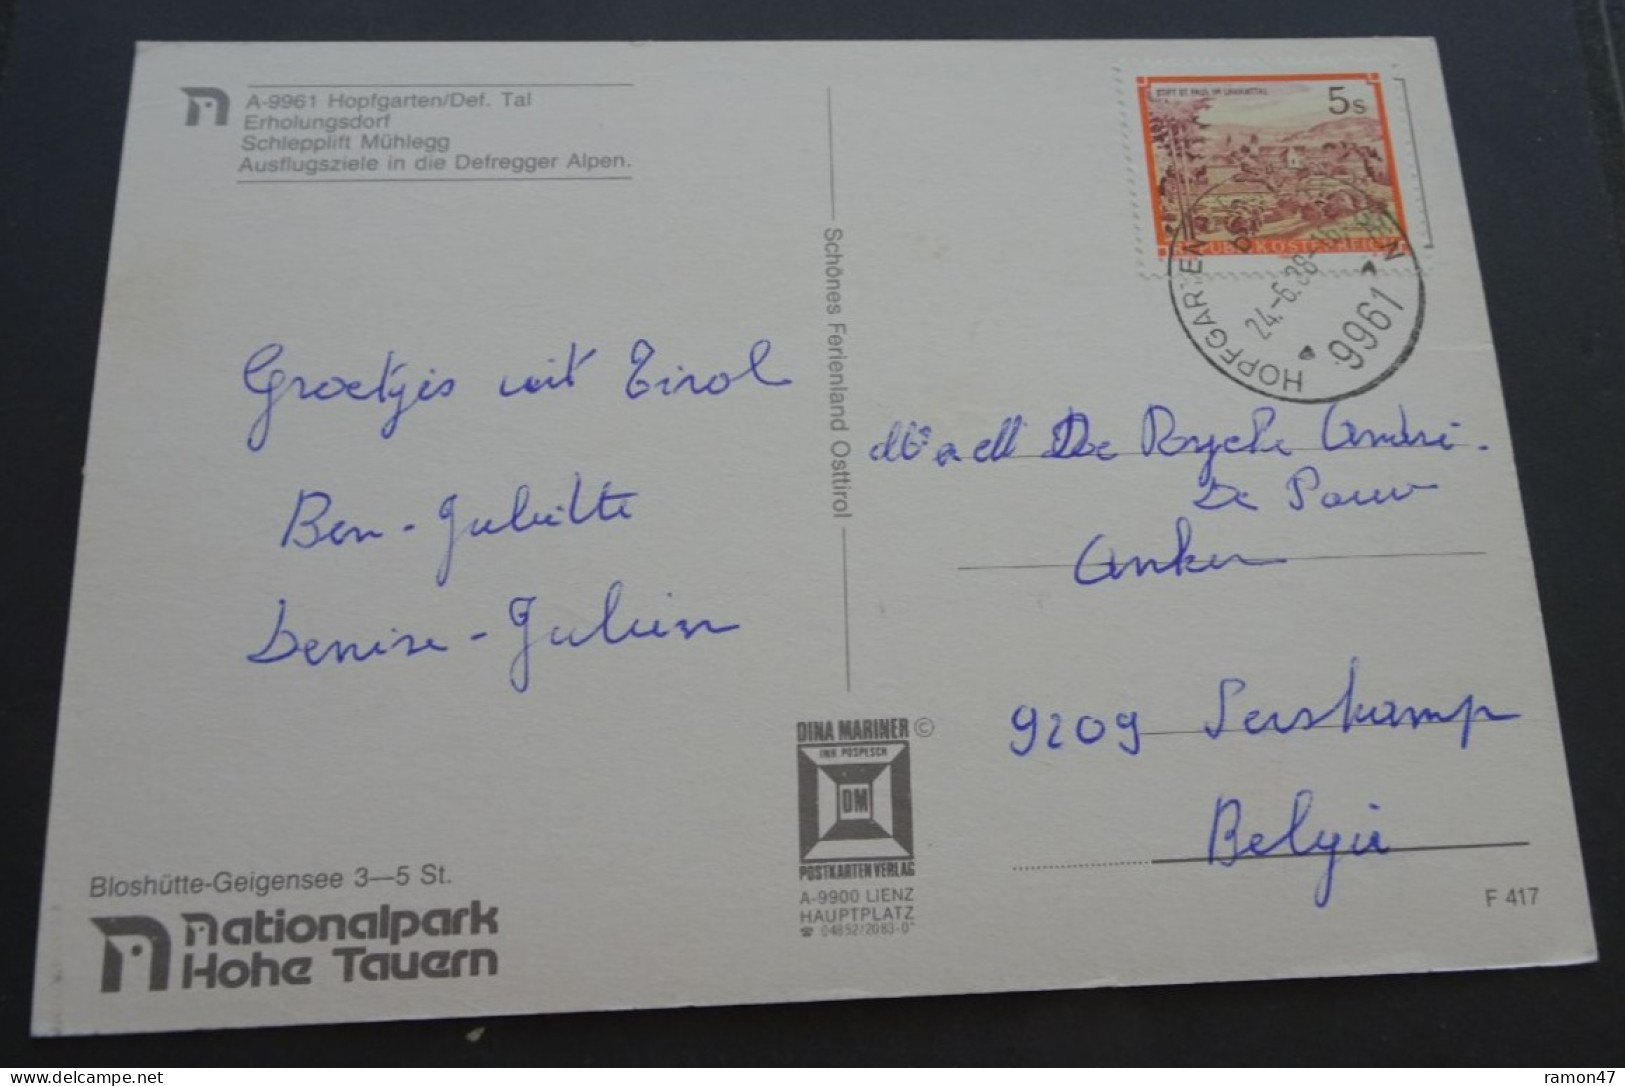 A-9961 Hopfgarten/Def. Tal
Erholungsdorf
Schlepplift Mühlegg
Ausflugsziele in die Defregger Alpen.
Groetjes uit Tirol
Ben - Juliette
Denise - Julien
Bloshütte-Geigensee 3—5 St.
Nationalpark
Hohe Tauern
Schönes Ferienland Osttirol
DINA MARINER ©
INH POSPESCH
DM
POSTKARTEN VERLAG
A-9900 LIENZ
HAUPTPLATZ
☎ 04852/2083-0
STIFT ST. PAUL IM LAVANTTAL
5 S
REPUBLIK ÖSTERREICH
HOPFGARTEN
24.-6.88
9961
De Rycke André.
De Pauw
Anker
9209 Serskamp
België
F 417
ramon47